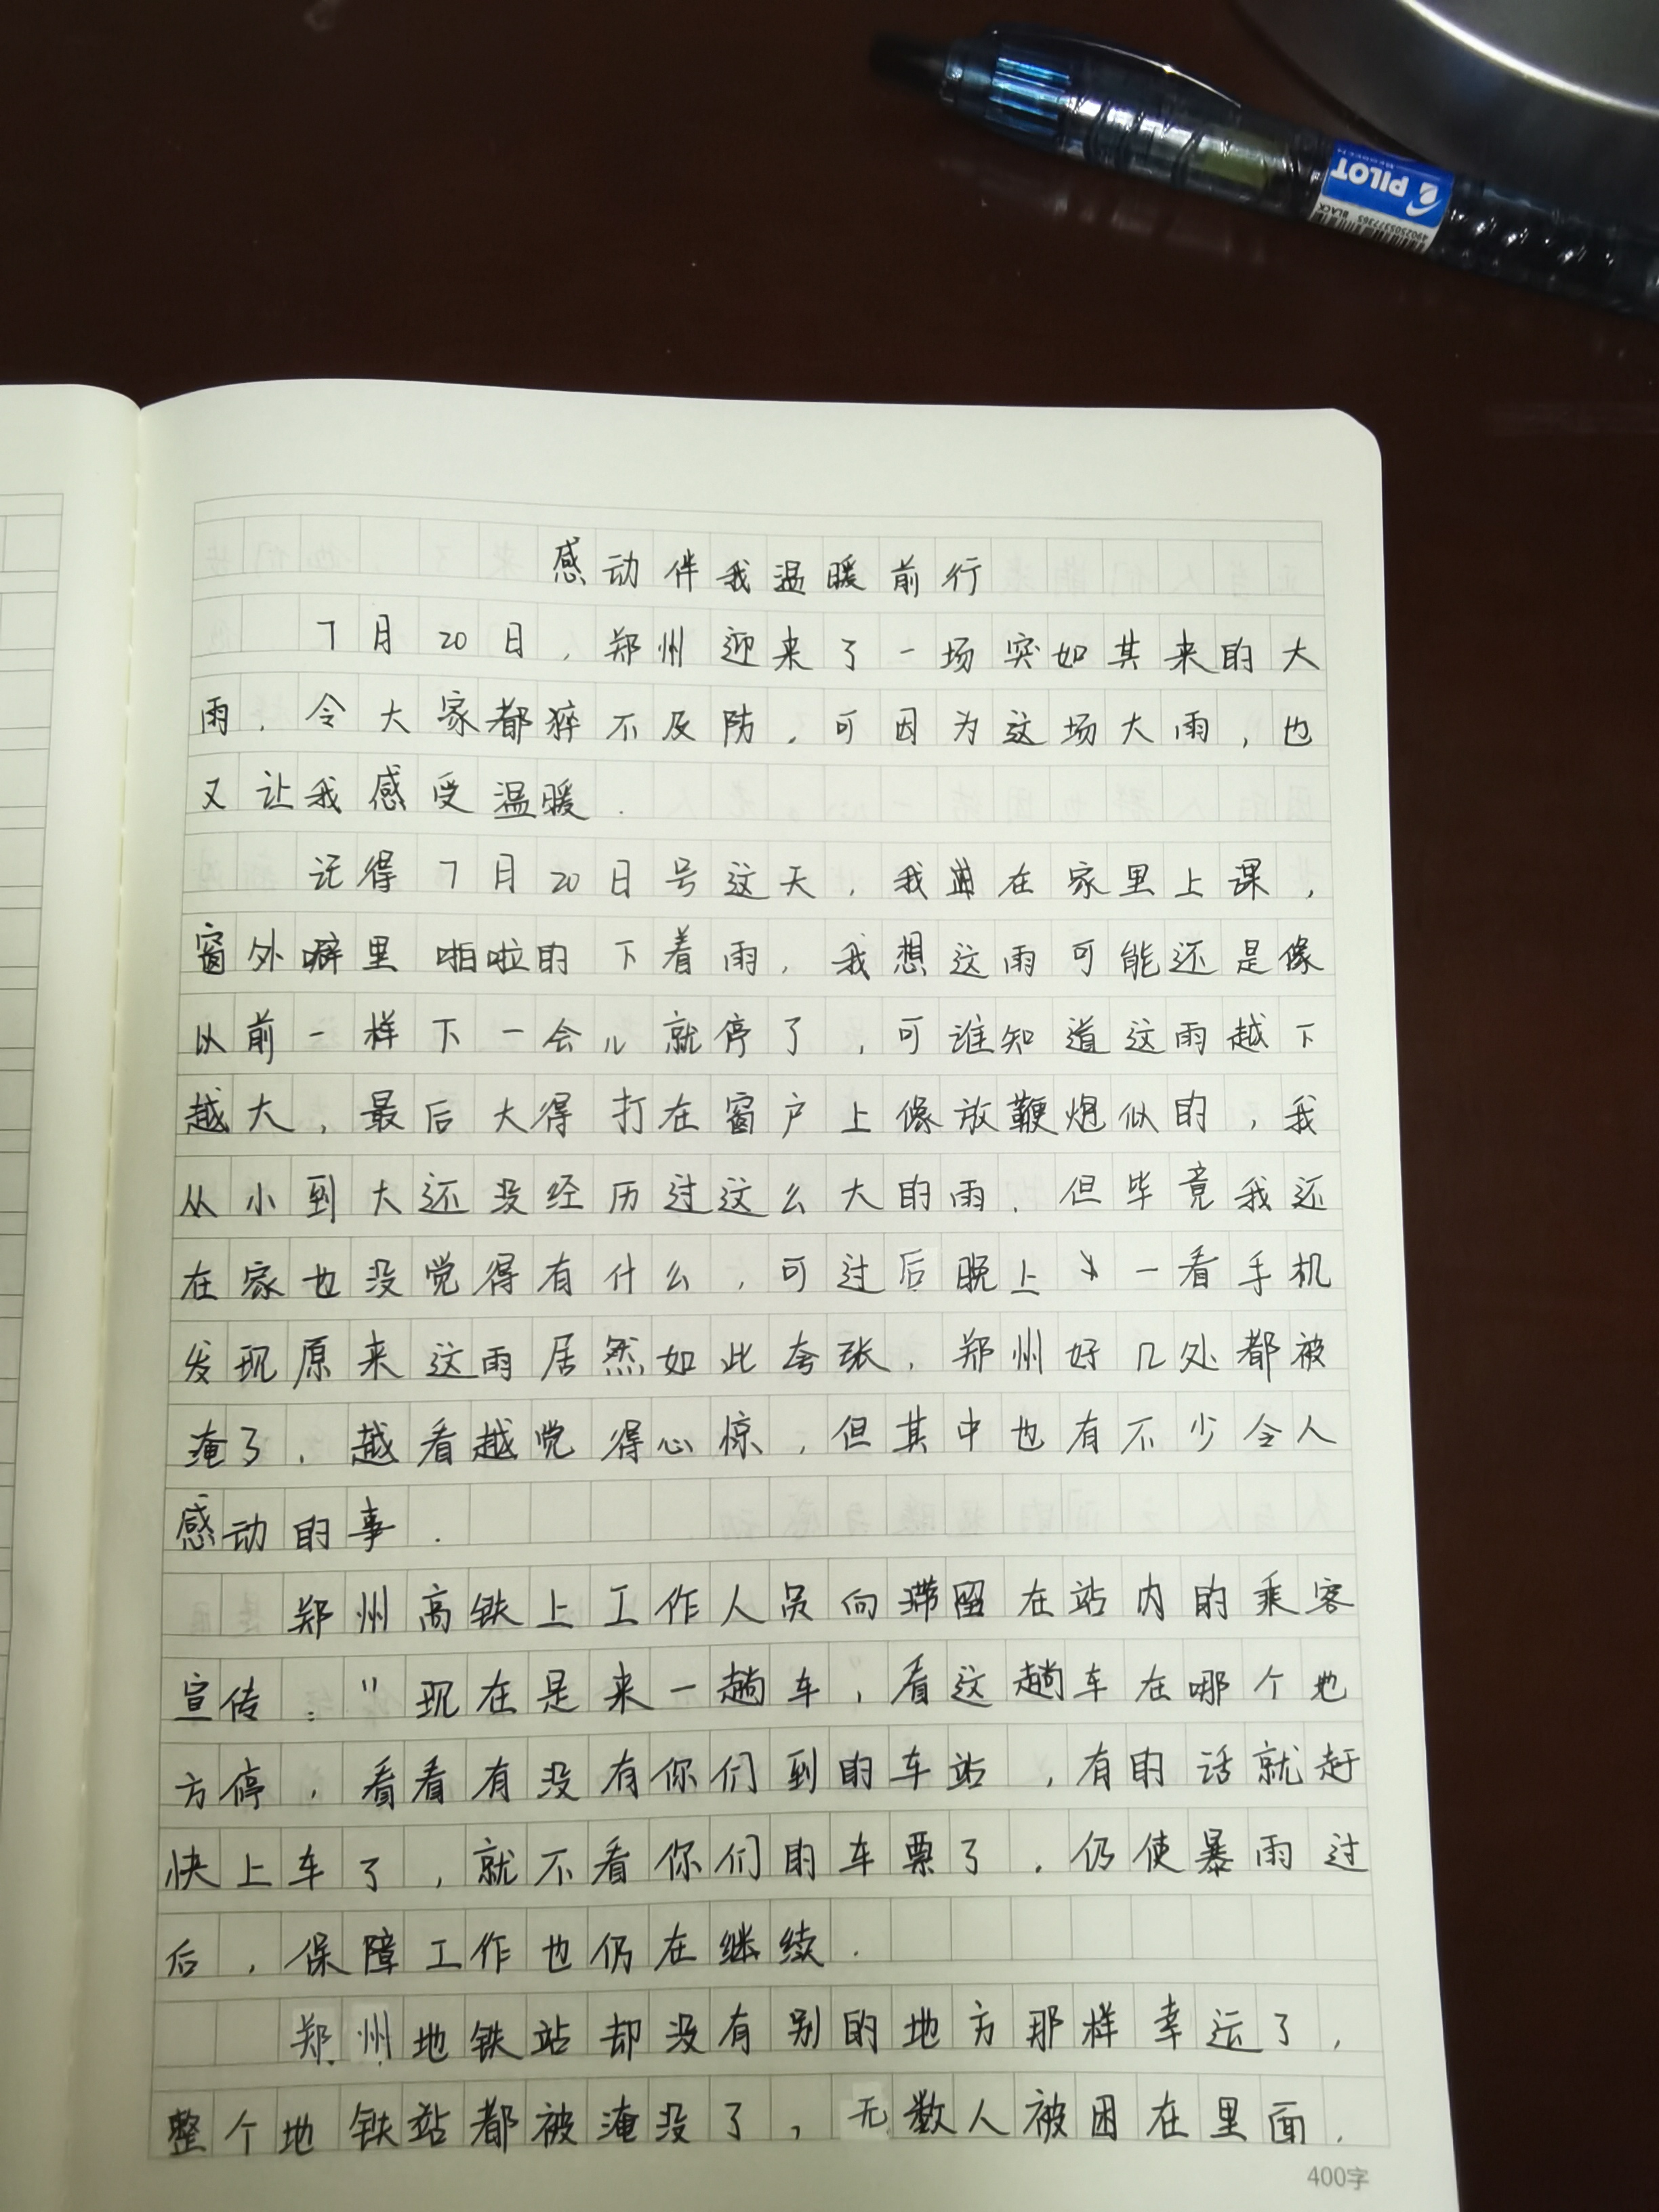 PILOT
BLACK
4902505377365
感动伴我温暖前行
7月20日,郑州迎来了一场突如其来的大
雨.令大家都猝不及防.可因为这场大雨,也
又让我感受温暖.
记得7月20日号这天,我在家里上课,
窗外噼里啪啦的下着雨,我想这雨可能还是像
以前一样下一会儿就停了,可谁知道这雨越下
越大,最后大得打在窗户上像放鞭炮似的,我
从小到大还没经历过这么大的雨.但毕竟我还
在家也没觉得有什么,可过后晚上一看手机
发现原来这雨居然如此夸张.郑州好几处都被
淹了.越看越觉得心惊,但其中也有不少令人
感动的事.
郑州高铁上工作人员向滞留在站内的乘客
宣传:"现在是来一趟车,看这趟车在哪个地
方停,看看有没有你们到的车站,有的话就赶
快上车了,就不看你们的车票了.仍使暴雨过
后,保障工作也仍在继续.
郑州地铁站却没有别的地方那样幸运了,
整个地铁站都被淹没了,无数人被困在里面.
400字